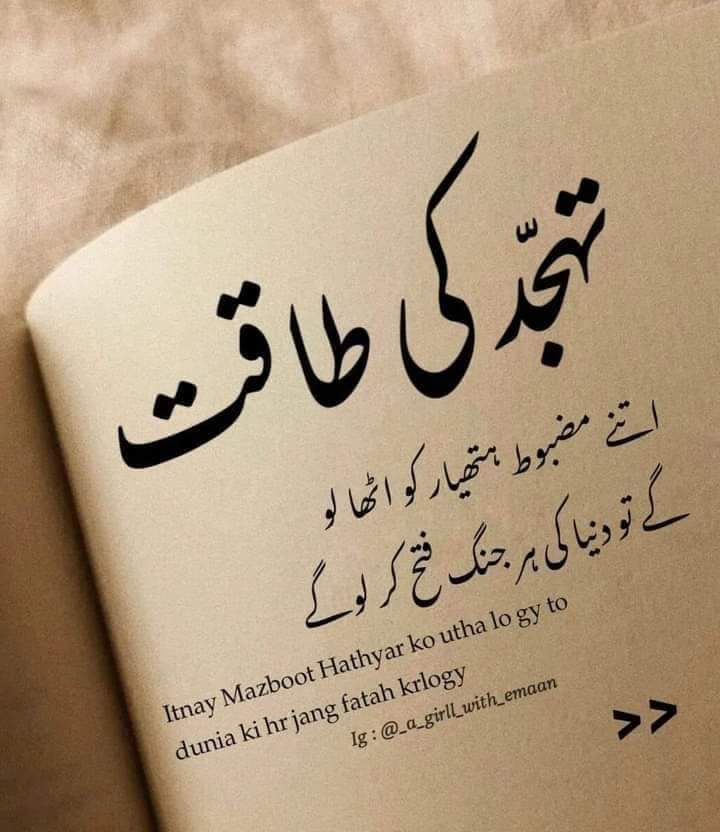 تہجّد کی طاقت
اتنے مضبوط ہتھیار کو اٹھا لو
گے تو دنیا کی ہر جنگ فتح کر لوگے
Itnay Mazboot Hathyar ko utha lo gy to
dunia ki hr jang fatah krlogy
Ig : @_a_girll_with_emaan
>>